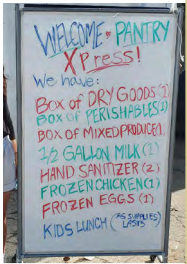 WELCOME • PANTRY
XPress!
We have:
BOX of DRY GOODS (1)
BOX OF PERISHABLES (2)
BOX OF MIXED PRODUCE (1)
1/2 GALLON MILK (1)
HAND SANITIZER (2)
FROZEN CHICKEN (1)
FROZEN EGGS (1)
KIDS LUNCH (AS SUPPLIES LASTS)